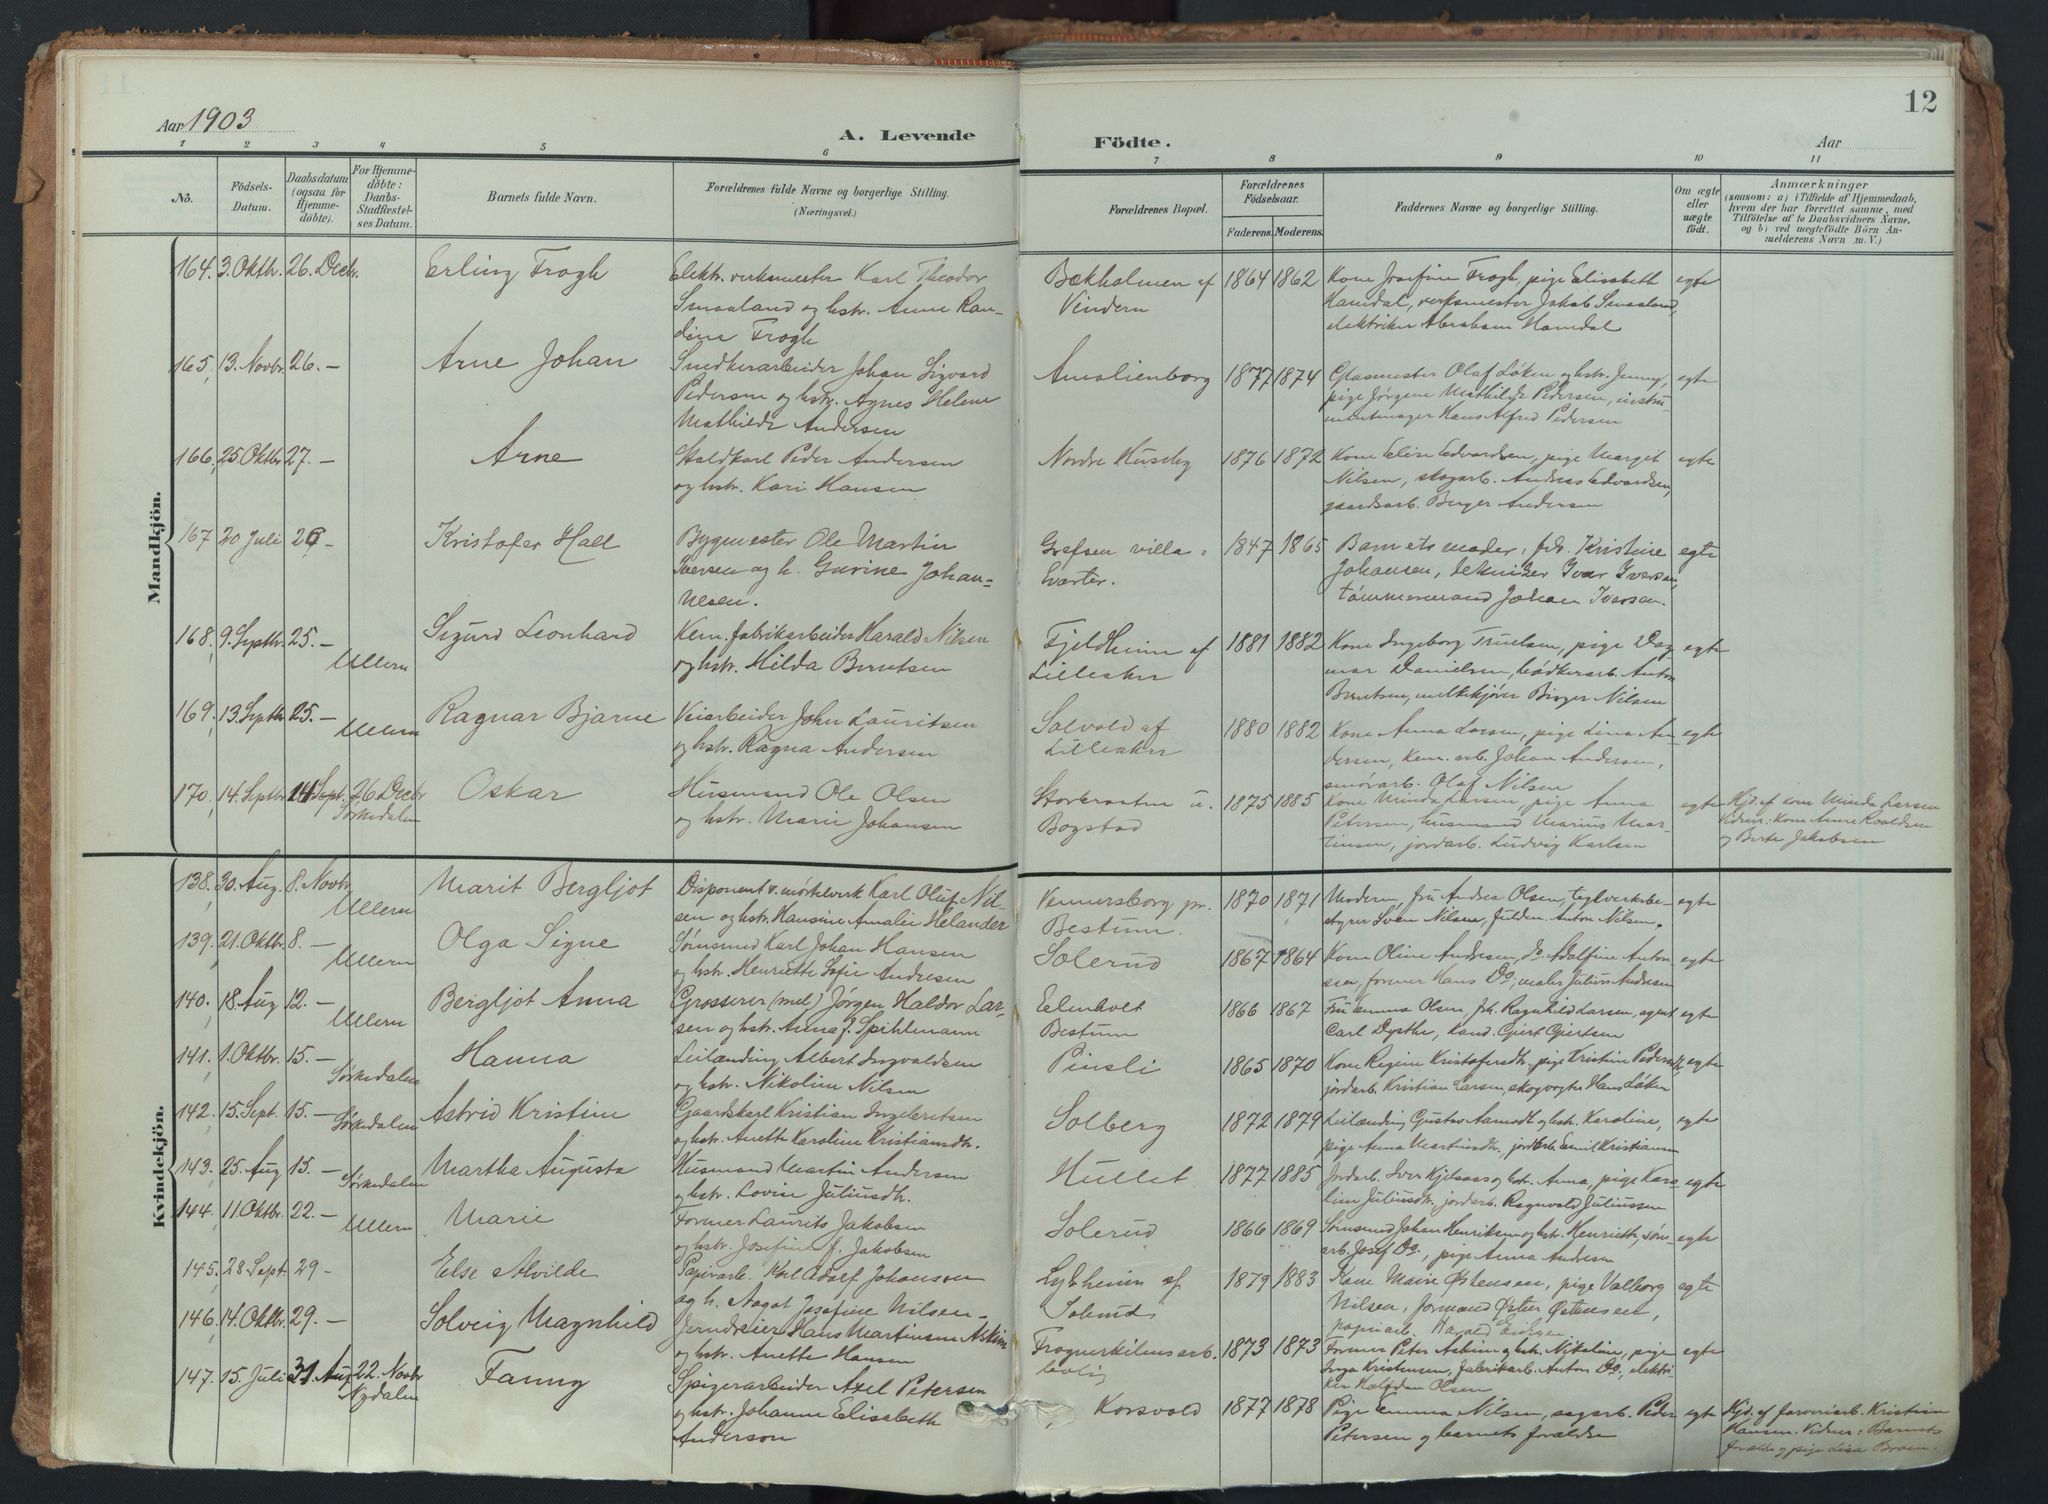 Aar 1903
A. Levende
Födte.
Aar
12
1 2 3 4 5 6 7 8 9 10 11
No.
Födsels-Datum.
Daabsdatum (ogsaa for Hjemmedöbte).
For Hjemmedöbte: Daabs-Stadfæstelses Datum.
Barnets fulde Navn.
Forældrenes fulde Navne og borgerlige Stilling. (Næringsvei.)
Forældrenes Bopæl.
Forældrenes Födselsaar.
Faderens. Moderens.
Faddernes Navne og borgerlige Stilling.
Om ægte eller uægte födt.
Anmærkninger
(saasom: a) i Tilfælde af Hjemmedaab, hvem der har forrettet samme, med Tilföielse af to Daabsvidners Navne, og b) ved uægtefödte Börn Anmelderens Navn m. V.)
Mandkjön.
164, 3. Oktbr. 26. Decbr. Erling Frogh
Elektr. verksmester Karl Theodor
Smaaland og hstr. Anne Ran-
dine Frogh
Bækholmen af
Vindern
1864 1862
Kone Josefine Frogh, pige Elisabeth
Hamdal, verksmester Jakob Smaaland,
elektriker Abraham Hamdal
egte
165, 13. Novbr. 26. – Arne Johan
Snedkerarbeider Johan Sigvard
Pedersen og hstr. Agnes Helene
Mathilde Andersen
Amalienborg
1877 1874
Glasmester Olaf Løken og hstr. Jenny,
pige Jørgine Mathilde Pedersen, instru-
mentmager Hans Alfred Pedersen
egte
166, 25. Oktbr. 27. – Arne
Staldkarl Peder Andersen
og hstr. Kari Hansen
Nordre Huseby
1876 1872
Kone Elise Edvardsen, pige Marget
Nilsen, skogarb. Andreas Edvardsen,
gaardsarb. Berger Andersen
egte
167 20 Juli 26 – Kristofer Hall
Bygmester Ole Martin
Iversen og h. Gurine Johan-
nesen.
Grefsen villa-
kvarter.
1847 1865
Barnets moder, frk. Kristine
Johansen, tekniker Ivar Iversen,
tømmermand Johan Iversen.
egte
168, 9. Septbr. 25. – Ullern Sigurd Leonhard
Kem. fabrikarbeider Harald Nilsen
og hstr. Hilda Berntsen
Fjeldheim af
Lilleaker
1881 1882
Kone Ingeborg Truelsen, pige Dag-
mar Danielsen, bødkerarb. Anton
Berntsen, melkekjører Birger Nilsen
egte
169, 13. Septbr. 25. – Ullern Ragnar Bjarne
Veiarbeider John Lauritsen
og hstr. Ragna Andersen
Solvold af
Lilleaker
1880 1882
Kone Anna Larsen, pige Lina An-
dersen, kem. arb. Johan Andersen,
smørarb. Olaf Nilsen
egte
170, 14. Septbr. 14 Sept. 26 Decbr Sørkedalen Oskar
Husmand Ole Olsen
og hstr. Marie Johansen
u.
Bogstad
1875 1885
Kone Minda Larsen, pige Anna
Petersen, husmand Marius Mar-
tinsen, jordarb. Ludvig Karlsen
egte
Hjd. af kone Minda Larsen
Vidner: Kone Anne Roaldsen
og Berte Jakobsen
Kvindekjön.
138, 30. Aug. 8. Novbr. Ullern Marit Bergljot
Disponent v. mørtelverk Karl Oluf Nil-
sen og hstr. Hansine Amalie Helander
Vennersborg pr.
Bestum.
1870 1871
Moderen, fru Andrea Olsen, teglverksbe-
styrer Sven Nilsen, fuldm. Anton Nilsen.
egte
139, 21. Oktbr. 8. – Ullern Olga Signe
Sømsmed Karl Johan Hansen
og hstr. Henriette Sofie Andresen
Solerud
1867 1864
Kone Oline Andresen, Do Adolfine Anton-
sen, former Hans Do, maler Julius Andresen
egte
140, 18. Aug 12. – Ullern Bergljot Anna
Grosserer (mel) Jørgen Haldor Lar-
sen og hstr. Anna f. Spihlmann
Elmholt
Bestum
1866 1867
Fru Emma Olsen, frk. Ragnhild Larsen, agent
Carl Dysthe, kand. Gjert Gjertsen
egte
141, 1. Oktbr. 15. – Sørkedalen Hanna
Leilænding Albert Ingvaldsen
og hstr. Nikoline Nilsen
Pinsli
1865 1870
Kone Regine Kristofersdtr. pige Kristine
jordarb. Kristian Larsen, skogvogter Hans Løken
egte
142, 15. Sept. 15. – Sørkedalen Astrid Kristine
Gaardskarl Kristian Ingebretsen
og hstr. Anette Karoline Kristiansdtr.
Solberg
1872 1879
Leilænding Gustav Aamodt og hstr. Karoline,
pige Anna Martinsdtr, jordarb. Emil Kristiansen
egte
143, 25. Aug 15. – Sørkedalen Martha Augusta
Husmand Martin Andersen
og hstr. Lovise Juliusdtr.
Hullet
1877 1885
Jordarb. Iver Kjelsaas og hstr. Anna, pige Karo-
line Juliusdtr. jordarb. Ragnvald Juliussen
egte
144, 11. Oktbr. 22. – Ullern Marie
Former Laurits Jakobsen
og hstr. Josefine f. Jakobsen
Solerud
1866 1869
Sømsmed Johan Henriksen og hstr. Henriette, søm-
arb. Josef Do., pige Anna Andresen
egte
145, 28 Sept. 29 – Else Alvilde
Papirarb. Karl Adolf Johansen
og h. Aagot Josefine Nilsen
af
Solerud
1879 1883
Kone Maire Østensen, pige Valborg
Nilsen, formand Østen Østensen,
papirarb. Harald
egte
146, 14. Oktbr. 29. – Solveig Magnhild
Jerndreier Hans Martinsen Askim
og hstr. Anette Hansen
Frognerkilens arb.
bolig
1873 1873
Former Peter Askim og hstr. Nikoline, pige
Inga Kristensen, fabrikarb. Anton Do., elektri-
ker Halfdan Olsen
egte
147, 15. Juli 31 Aug 22. Novbr Nydalen Fanny
Spigerarbeider Axel Petersen
og hstr. Johanne Elisabeth
Anderson
Korsvold
1877 1878
Pige Emma Nilsen, sagarb. Peder
Petersen og barnets forældre
egte
Hjd. af Kristian
Hansen. Vidner: Barnets
forældre og pige Lisa